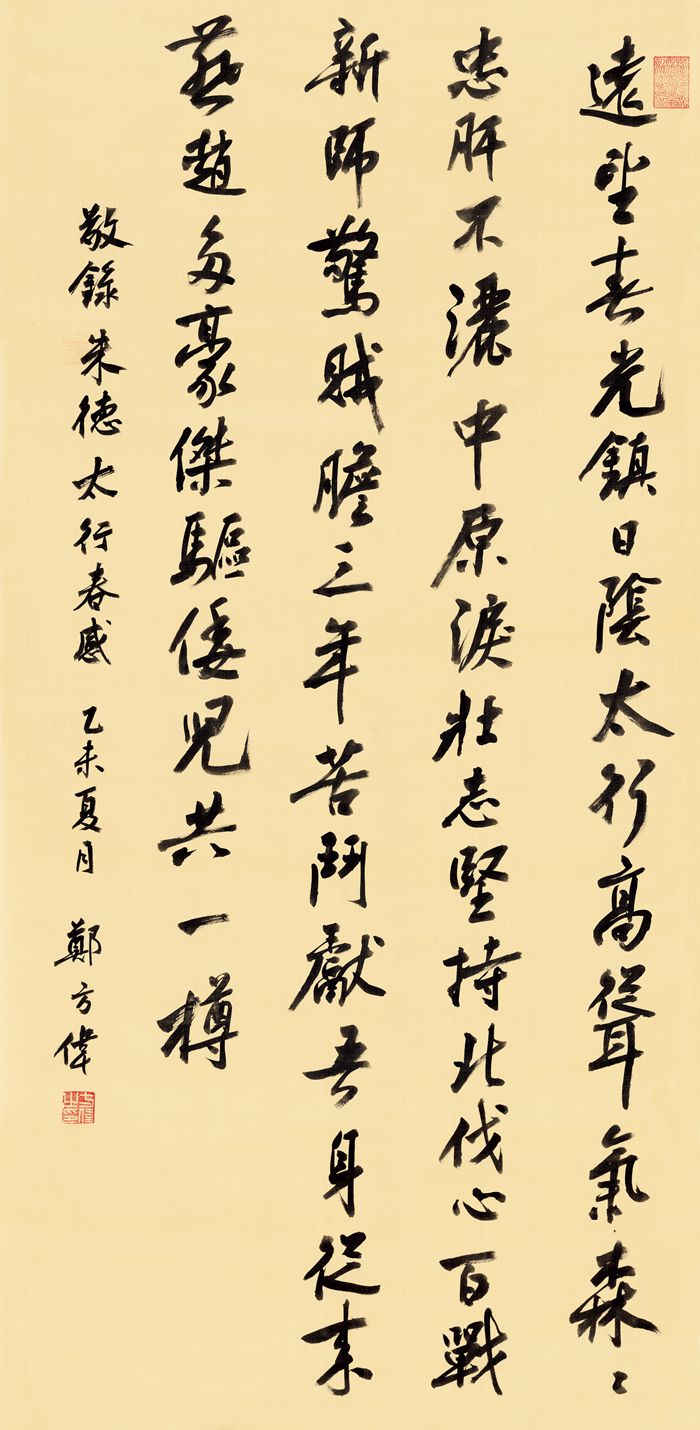 遠望春光鎮日陰太行高聳氣森〻
忠肝不灑中原淚壯志堅持北伐心百戰
新師驚賊膽三年苦鬥獻吾身從來
燕趙多豪傑驅倭兒共一樽
敬錄朱德太行春感 乙未夏月 鄭方偉